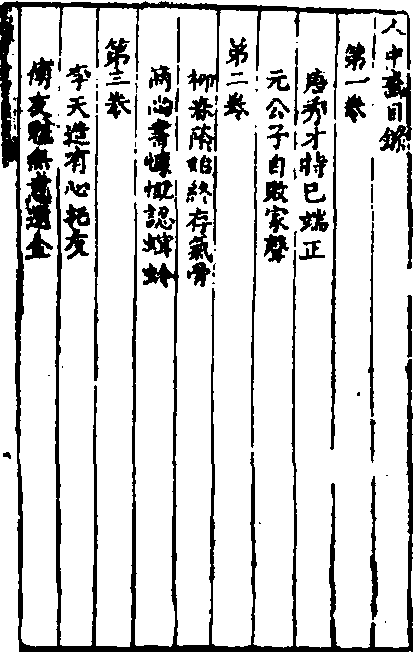 人中畫目錄
第一卷
唐秀才持已端正
元公子自敗家聲
第二卷
柳春蔭始終存氣骨
商尚書慷慨認螟蛉
第三卷
李天造有心托友
傅文魁無意還金